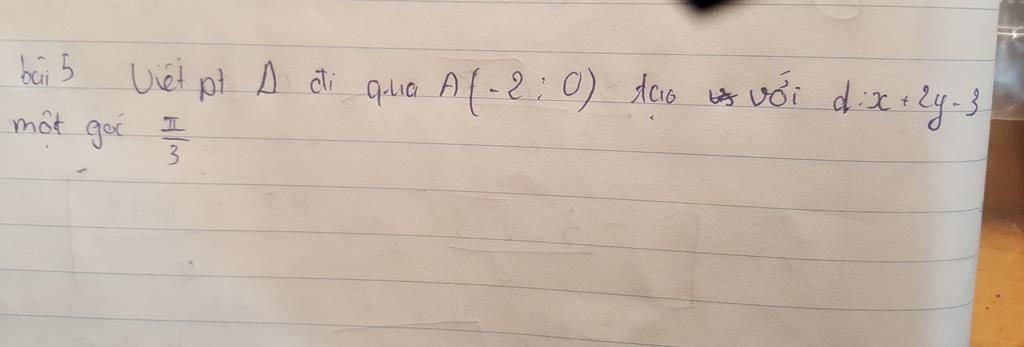 bài 5 Viết pt Δ đi qua A(-2; 0) tạo với d: x + 2y - 3
một góc π/3